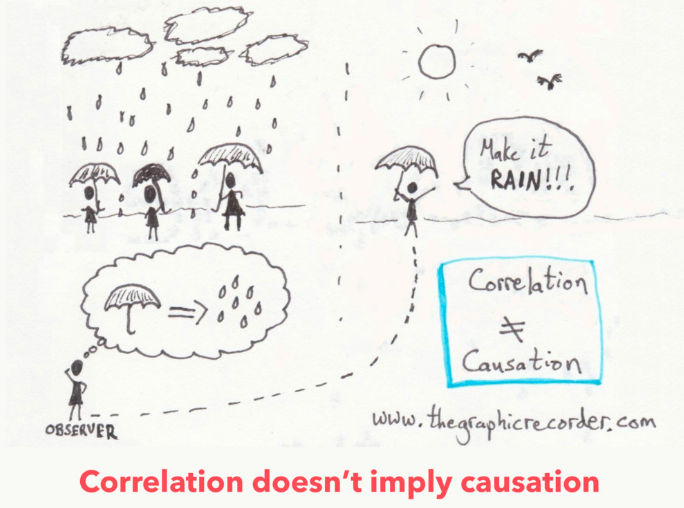 Make it
RAIN!!!
OBSERVER
Correlation
≠
Causation
www.thegraphicrecorder.com
Correlation doesn’t imply causation